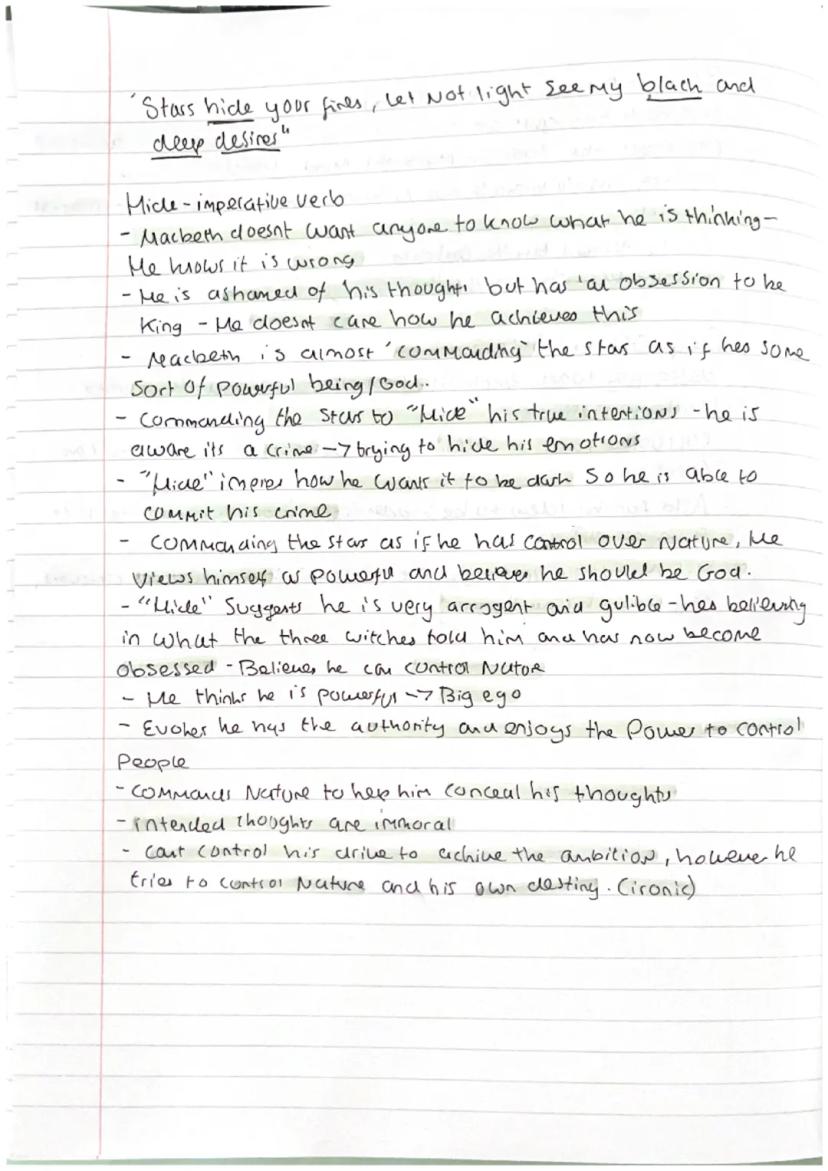 "Stars hide your fires, Let Not light See my black and
deep desires"
Hide - imperative verb
- Macbeth doesnt want anyone to know what he is thinking -
He knows it is wrong
- He is ashamed of his thoughts but has an obsession to be
King - He doesnt care how he achieves this
- Macbeth is almost 'commanding' the stars as if hes some
sort of powerful being/God.
- Commanding the stars to "Hide" his true intentions - he is
aware its a crime -> trying to hide his emotions
- "Hide" implies how he wants it to be dark so he is able to
commit his crime
- Commanding the stars as if he has control over Nature, He
views himself as powerful and believes he should be God.
- "Hide" Suggests he is very arrogent and gulible - hes believing
in what the three witches told him and has now become
obsessed - Believes he can control Nator
- He thinks he is powerful -> Big ego
- Evokes he has the authority and enjoys the Power to control
People
- Commands Nature to help him conceal his thoughts
- intended thoughts are immoral
- cant control his drive to achive the ambition, however he
tries to control Nature and his own destiny. (ironic)